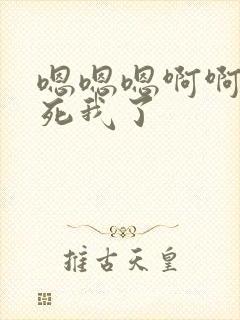 嗯嗯嗯啊啊
死我了
推古天皇